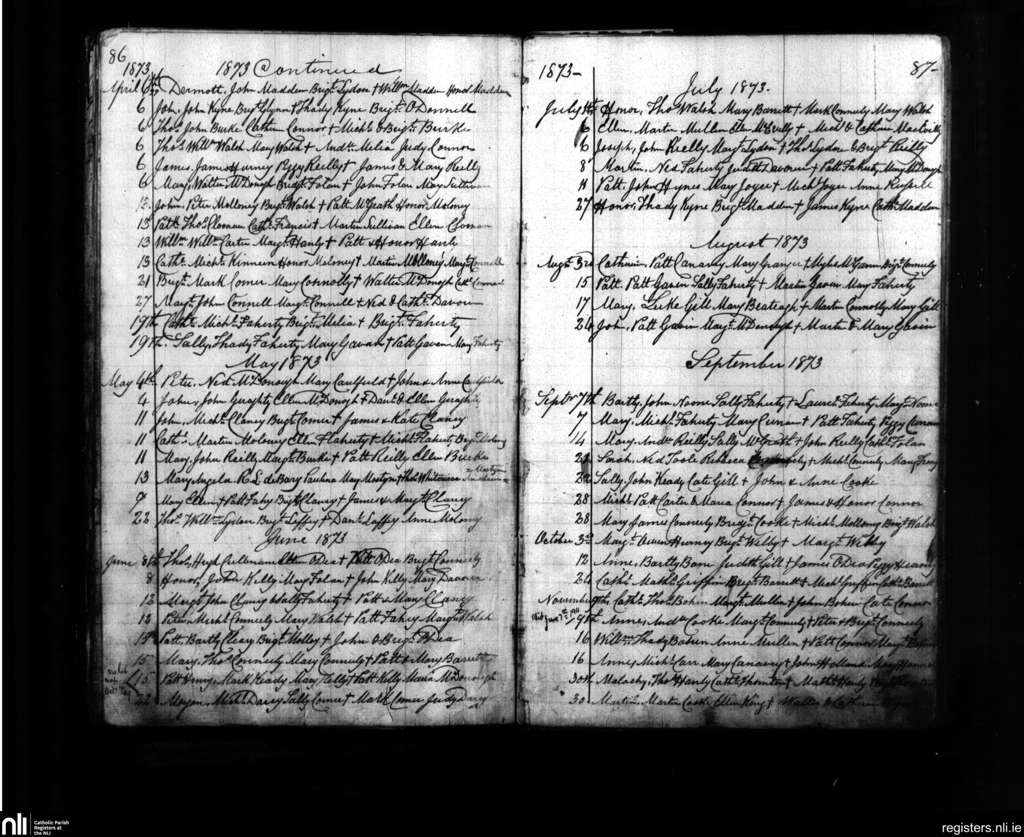 86
1873
1873 Continued
April 6th Dermott, John Madden Brigt Lydon + Willm Madden Honor Madden
6 Joh, John Kyne Brigt Glynn + Thady Kyne Brigt O'Donnell
6 Thos John Burke Cathn Connor + Michl & Brigt Burke
6 Thos Willm Walsh May Walsh + Andw Melia Judy Connor
6 James, James Hurney Peggy Reilly + James & Mary Reilly
6 Mary, Walter McDonogh Bridgt Folan + John Folan Mary Sullivan
13 John, Peter Molloney Brigt Walsh + Patt McGrath Honor Molony
13 Patt, Thos Cloonan Cathe Francis + Martin Sullivan Ellen Cloonan
13 Willm Willm Carter Margt Hanly + Patt & Honor Hanly
13 Cathe Michl Kinneen Honor Moloney + Martin Molloney Mary Connell
21 Brigt Mark Comer Mary Connolly + Walter McDonogh
27 Margt John Connell Margt Connell + Ned & Cathe Davoren
19th Cathe Michl Faherty Brigt Melia + Brigt Faherty
19th Sally, Thady Faherty Mary Gavan + Patt Gaven Mary Faherty
May 1873
May 4th Peter, Ned McDonough Mary Caulfield + John & Anne Caulfield
4 John, John Geraghty Ellen McDonogh + Danl & Ellen Geraghty
11 John, Michl Clancy Brigt Comer + James & Kate Clancy
11 Cathe Martin Moloney Ellen Flaherty + Michl Flaherty Brigt Molony
11 Mary, John Reilly Margt Burke + Patt Reilly Ellen Burke
13 Mary Angela R.L. de Bary Paulina Mary Mostyn + Thos
9 Mary Ellen + Patt Fahy Brigt Clancy + James & Margt Clancy
22 Thos Willm Lydon Brigt Laffey + Danl Laffey Anne Molony
June 1873
June 8th Thos, Hugh Cullinane Ellen O'Dea + Patt O'Dea Brigt Conneely
8 Honor, Kelly Mary Folan + John Kelly Mary Davoren
12 Margt John Clancy Sally Faherty + Patt & Mary Clancy
12 Peter, Michl Conneely Mary Walsh + Patt Fahey Margt Walsh
Patt, Bartly Cleary Brigt Molloy + John & Brigt O'Dea
15 Mary, Thos Conneely Mary Conneely + Patt & Mary Barrett
15 Patt Mark Keady Mary Kelly + Patt Kelly Maria McDonough
22 Michl Davy Sally Comer + Mark Comer Judy Davy
1873-
87-
July 1873.
July Honor, Thos Walsh Mary Barrett + Mark Conneely Mary Walsh
6 Ellen, Martin Mullen Ellen McEvilly + Michl & Cathrine MacEvilly
6 Joseph, John Reilly Mary Lydon + Thos Lydon & Brigt Reilly
8 Martin, Ned Faherty Judith Davoren + Patt Faherty Mary McDonogh
11 Patt, John Hynes Mary Joyce + Mich Joyce Anne Russell
27 Honor, Thady Kyne Brigt Madden + James Kyne Cathe Madden
August 1873
Augt 3rd Cathrin Patt Canavan Mary Granger + Myles McGann Brigt Conneely
15 Patt, Patt Gavan Sally Faherty + Martin Gavan Mary Faherty
17 Mary, Luke Gill Mary Beatagh + Martin Connolly Mary Gill
24 John, Patt Gavin Margt McDonough + Martin & Mary Gavin
September 1873
Septbr 7th Barth, John Noone Sally Faherty + Laurce Faherty Mary Noone
7 Mary, Michl Faherty Mary Curran + Patt Faherty Peggy Curran
14 Mary, Andw Reilly Sally McGrath + John Reilly Cathe Folan
21 Sarah, Ned Toole Rebecca + Michl Conneely Mary
28 Sally, John Keady Cate Gill + John & Anne Cooke
28 Michl Patt Carter & Maria Connor + James & Honor Connor
28 Mary James Conneely Bridgt Cooke + Michl Mollony Brigt Walsh
October 3rd Margt Owen Hurney Brigt Welby + Margt Welby
12 Anne, Bartly Bane Judith Gill + James O'Dea Peggy Hearn
26 Cathe Mathw Griffin Brigt Barrett + Michl Griffin Cathe Barrett
November Cathe Thos Bohan Margt Mullen + John Bohan Cate Connor
9th Anne, Andw Cooke Margt Conneely + Peter & Brigt Conneely
16 Willm Thady Boden Anne Mullen + Patt Connor Mary
16 Anne, Michl Carr Mary Canavan + John Holland Mary
30th Malachy, Thos Hanly Cathe Thornton + Mathw Hanly
30 Martin, Martin Cooke Ellen King + Walter & Cathrin
nli
Catholic Parish
Registers at
the NLI
registers.nli.ie